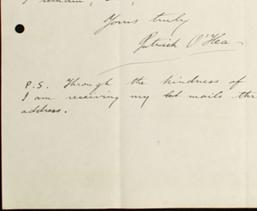 I remain,
Yours truly
Patrick O'Hea
P.S. Through the kindness of
I am receiving my mails
address.